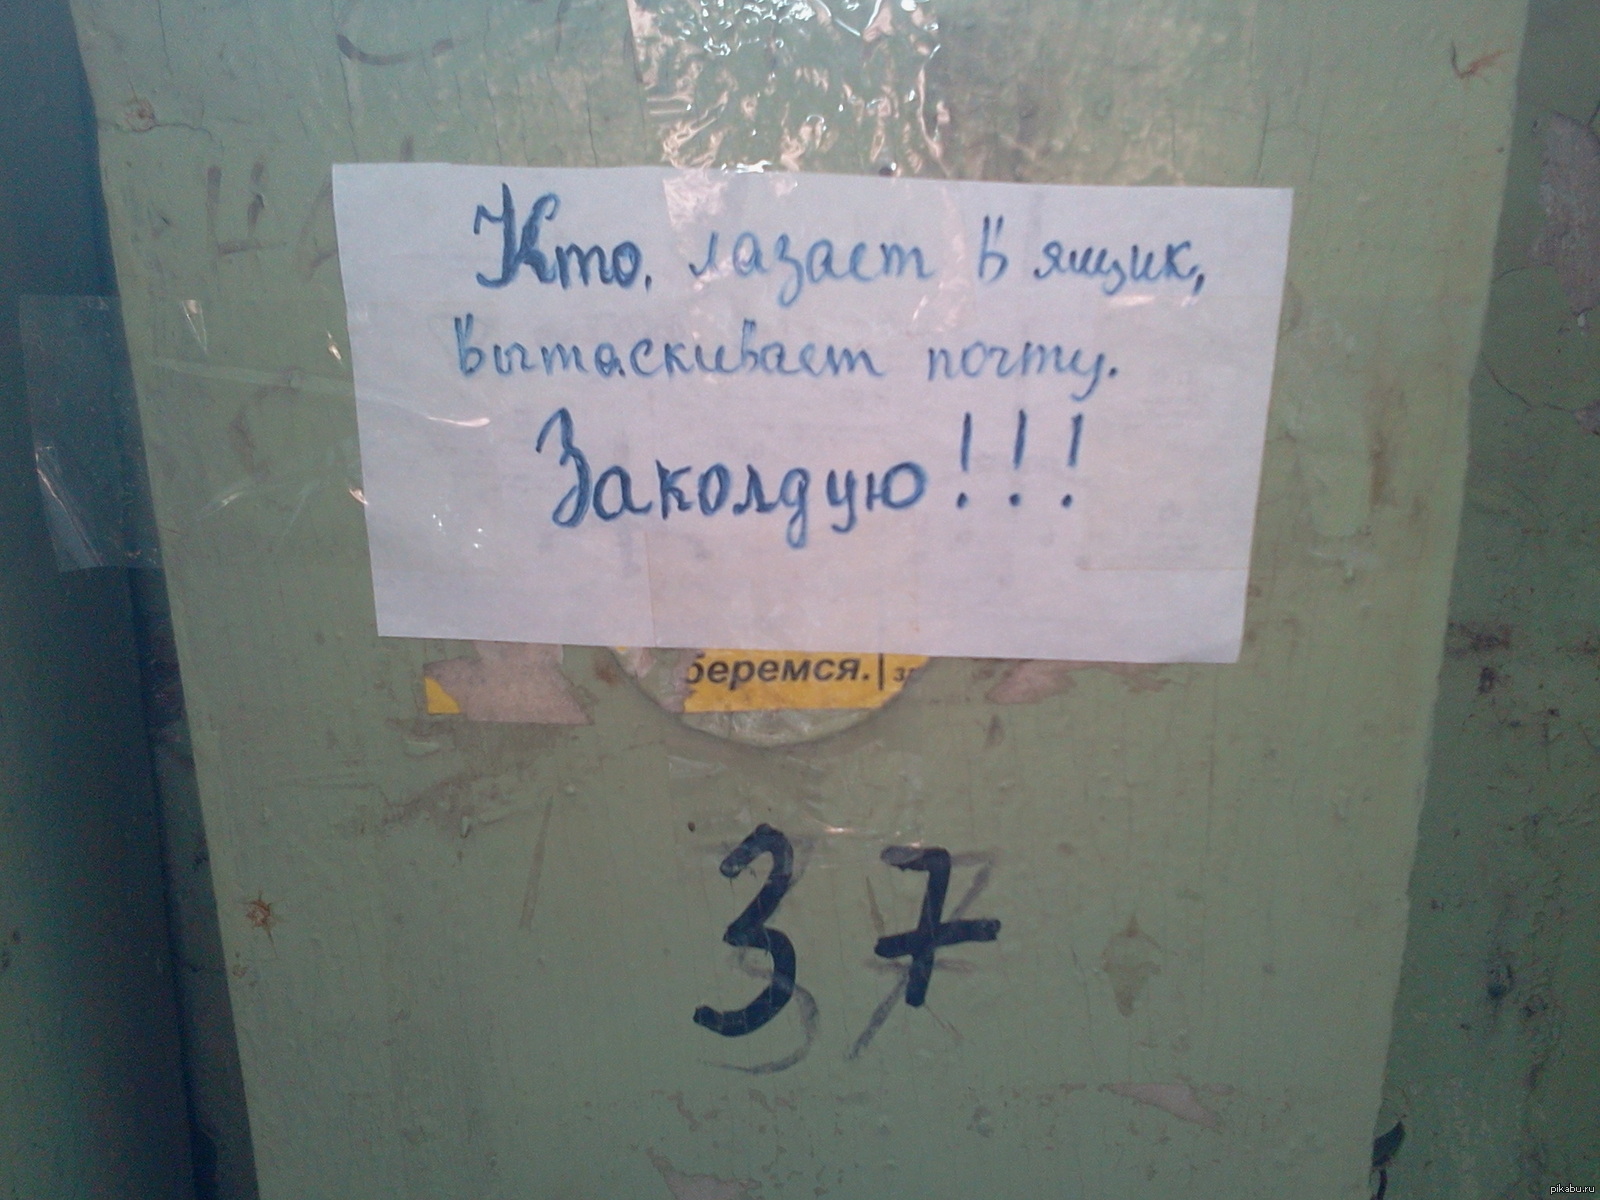 Кто, лазает в ящик,
вытаскивает почту.
Заколдую!!!
беремся.|
37
pikabu.ru